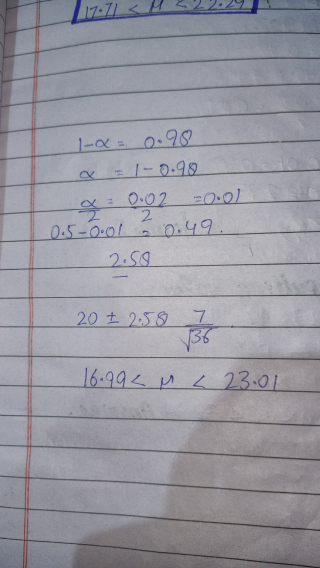 17.71 < μ < 22.29
1-α = 0.98
α = 1-0.98
α/2 = 0.02/2 = 0.01
0.5-0.01 = 0.49.
2.58
20 ± 2.58 7/√36
16.99 < μ < 23.01